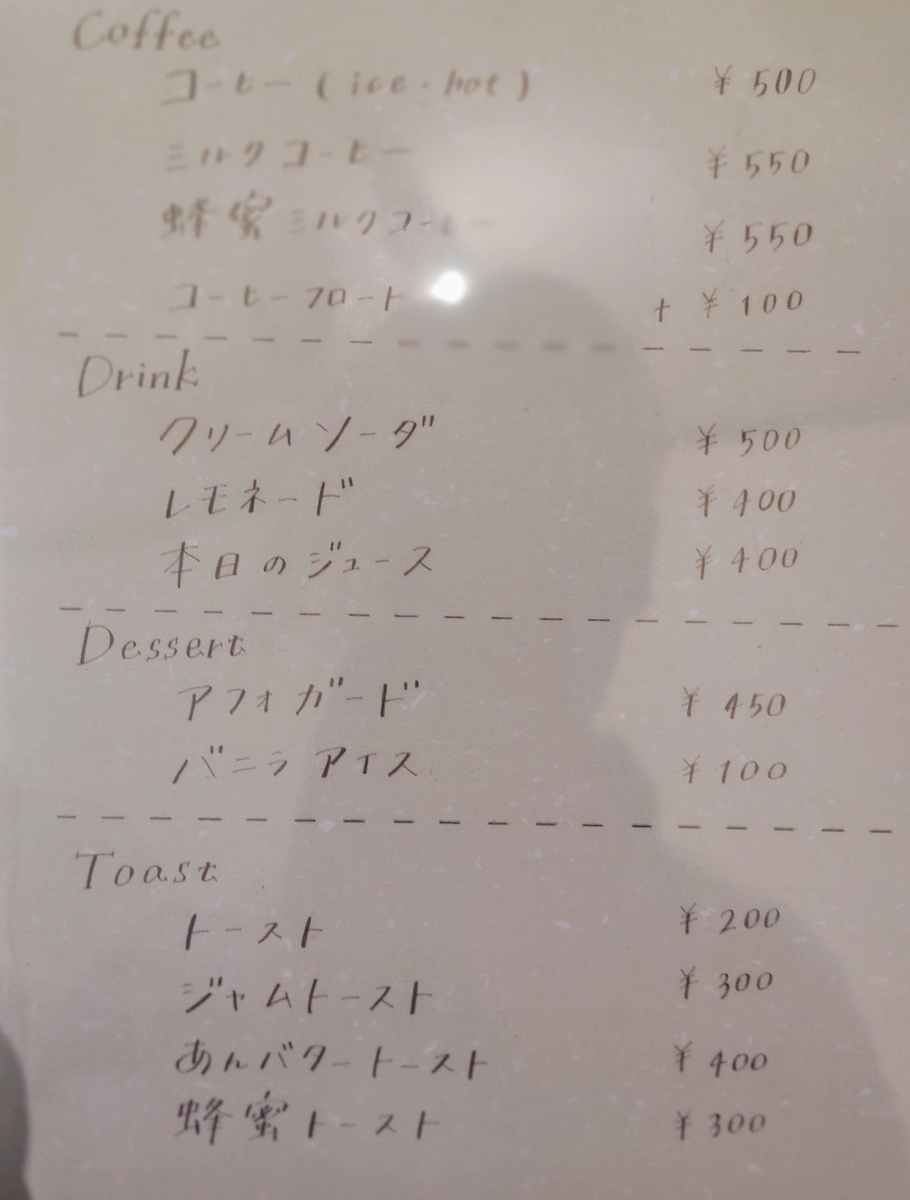 Coffee
コーヒー (ice・hot) ¥500
ミルクコーヒー ¥550
蜂蜜ミルクコーヒー ¥550
コーヒーフロート + ¥100
Drink
クリームソーダ ¥500
レモネード ¥400
本日のジュース ¥400
Dessert
アフォガード ¥450
バニラアイス ¥100
Toast
トースト ¥200
ジャムトースト ¥300
あんバタートースト ¥400
蜂蜜トースト ¥300